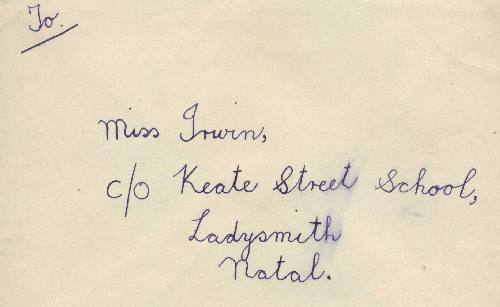 To.
Miss Irwin,
c/o Keate Street School,
Ladysmith
Natal.